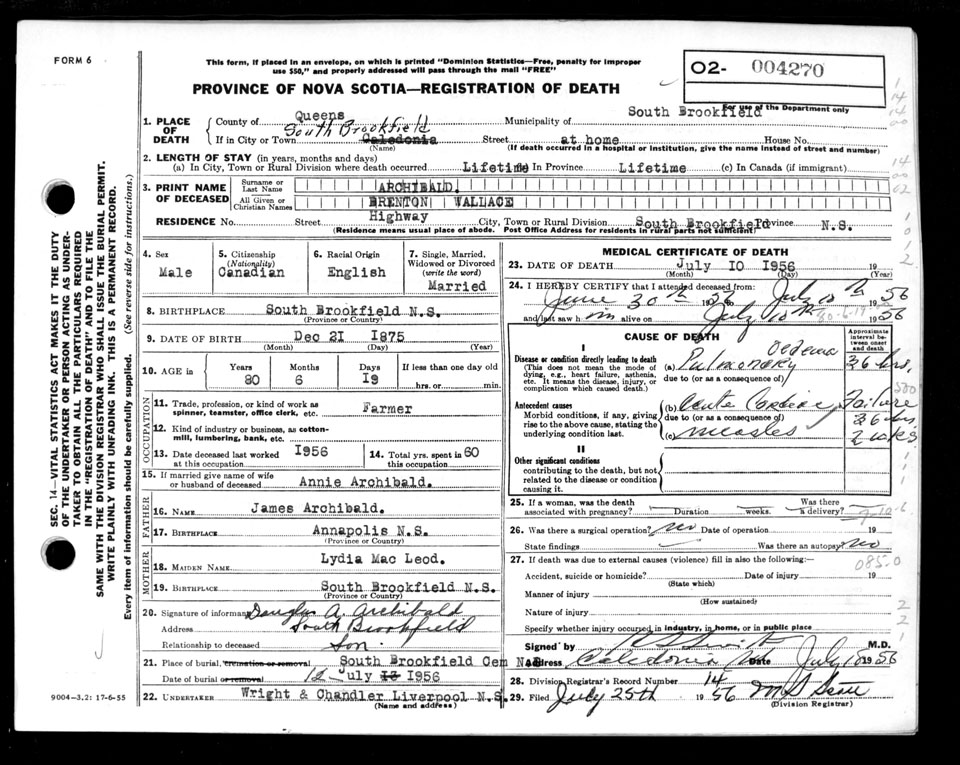 FORM 6
This form, if placed in an envelope, on which is printed "Dominion Statistics—Free, penalty for improper
use $50," and properly addressed will pass through the mail "FREE"
02- 004270
For use of the Department only
PROVINCE OF NOVA SCOTIA—REGISTRATION OF DEATH
1. PLACE OF DEATH
County of Queens Municipality of South Brookfield
South Brookfield
If in City or Town Caledonia Street at home House No.
(Name) (If death occurred in a hospital or institution, give the name instead of street and number)
2. LENGTH OF STAY (in years, months and days)
(a) In City, Town or Rural Division where death occurred Lifetime In Province Lifetime (c) In Canada (if immigrant)
3. PRINT NAME OF DECEASED
Surname or Last Name ARCHIBALD.
All Given or Christian Names BRENTON WALLACE
RESIDENCE No. Street Highway City, Town or Rural Division South Brookfield Province N.S.
(Residence means usual place of abode. Post Office Address for residents in rural parts not sufficient)
4. Sex
Male
5. Citizenship
(Nationality)
Canadian
6. Racial Origin
English
7. Single, Married, Widowed or Divorced
(write the word)
Married
8. BIRTHPLACE South Brookfield N.S.
(Province or Country)
9. DATE OF BIRTH Dec 21 1875
(Month) (Day) (Year)
10. AGE in Years 80 Months 6 Days 19 If less than one day old
hrs. or min.
OCCUPATION
11. Trade, profession, or kind of work as
spinner, teamster, office clerk, etc. Farmer
12. Kind of industry or business, as cotton-
mill, lumbering, bank, etc.
13. Date deceased last worked
at this occupation 1956
14. Total yrs. spent in
this occupation 60
15. If married give name of wife
or husband of deceased Annie Archibald.
FATHER
16. NAME James Archibald.
17. BIRTHPLACE Annapolis N.S.
(Province or Country)
MOTHER
18. MAIDEN NAME Lydia Mac Leod.
19. BIRTHPLACE South Brookfield N.S.
(Province or Country)
20. Signature of informant Douglas A. Archibald
Address South Brookfield
Relationship to deceased Son
21. Place of burial, cremation or removal South Brookfield Cem N.S.
Date of burial or removal 12 July 13 1956
22. UNDERTAKER Wright & Chandler Liverpool N.S.
(Name and address)
MEDICAL CERTIFICATE OF DEATH
23. DATE OF DEATH July 10 1956 19
(Month) (Day) (Year)
24. I HEREBY CERTIFY that I attended deceased from:
June 30th 1956 to July 10th 1956
and last saw him alive on July 10th 1956
CAUSE OF DEATH
Approximate interval between onset and death
I
Disease or condition directly leading to death
(This does not mean the mode of
dying, e.g., heart failure, asthenia,
etc. It means the disease, injury, or
complication which caused death.)
(a) Pulmonary Oedema 36 hrs.
due to (or as a consequence of)
Antecedent causes
Morbid conditions, if any, giving
rise to the above cause, stating the
underlying condition last.
(b) Acute Cardiac Failure 36 hrs
due to (or as a consequence of)
(c) measles 2 wks
II
Other significant conditions
contributing to the death, but not
related to the disease or condition
causing it.
25. If a woman, was the death
associated with pregnancy? Duration weeks. Was there
a delivery?
26. Was there a surgical operation? no Date of operation 19
State findings Was there an autopsy? no
27. If death was due to external causes (violence) fill in also the following:—
085.0
Accident, suicide or homicide? Date of injury 19
(State which)
Manner of injury
(How sustained)
Nature of injury
Specify whether injury occurred in industry, in home, or in public place
Signed by M.D.
Address Caledonia NS Date July 18 1956
28. Division Registrar's Record Number 14
29. Filed July 25th 1956
(Division Registrar)
SEC. 14—VITAL STATISTICS ACT MAKES IT THE DUTY
OF THE UNDERTAKER OR PERSON ACTING AS UNDER-
TAKER TO OBTAIN ALL THE PARTICULARS REQUIRED
IN THE "REGISTRATION OF DEATH" AND TO FILE THE
SAME WITH THE DIVISION REGISTRAR WHO SHALL ISSUE THE BURIAL PERMIT.
WRITE PLAINLY WITH UNFADING INK. THIS IS A PERMANENT RECORD.
Every item of information should be carefully supplied. (See reverse side for instructions.)
9004-3,2: 17-6-55